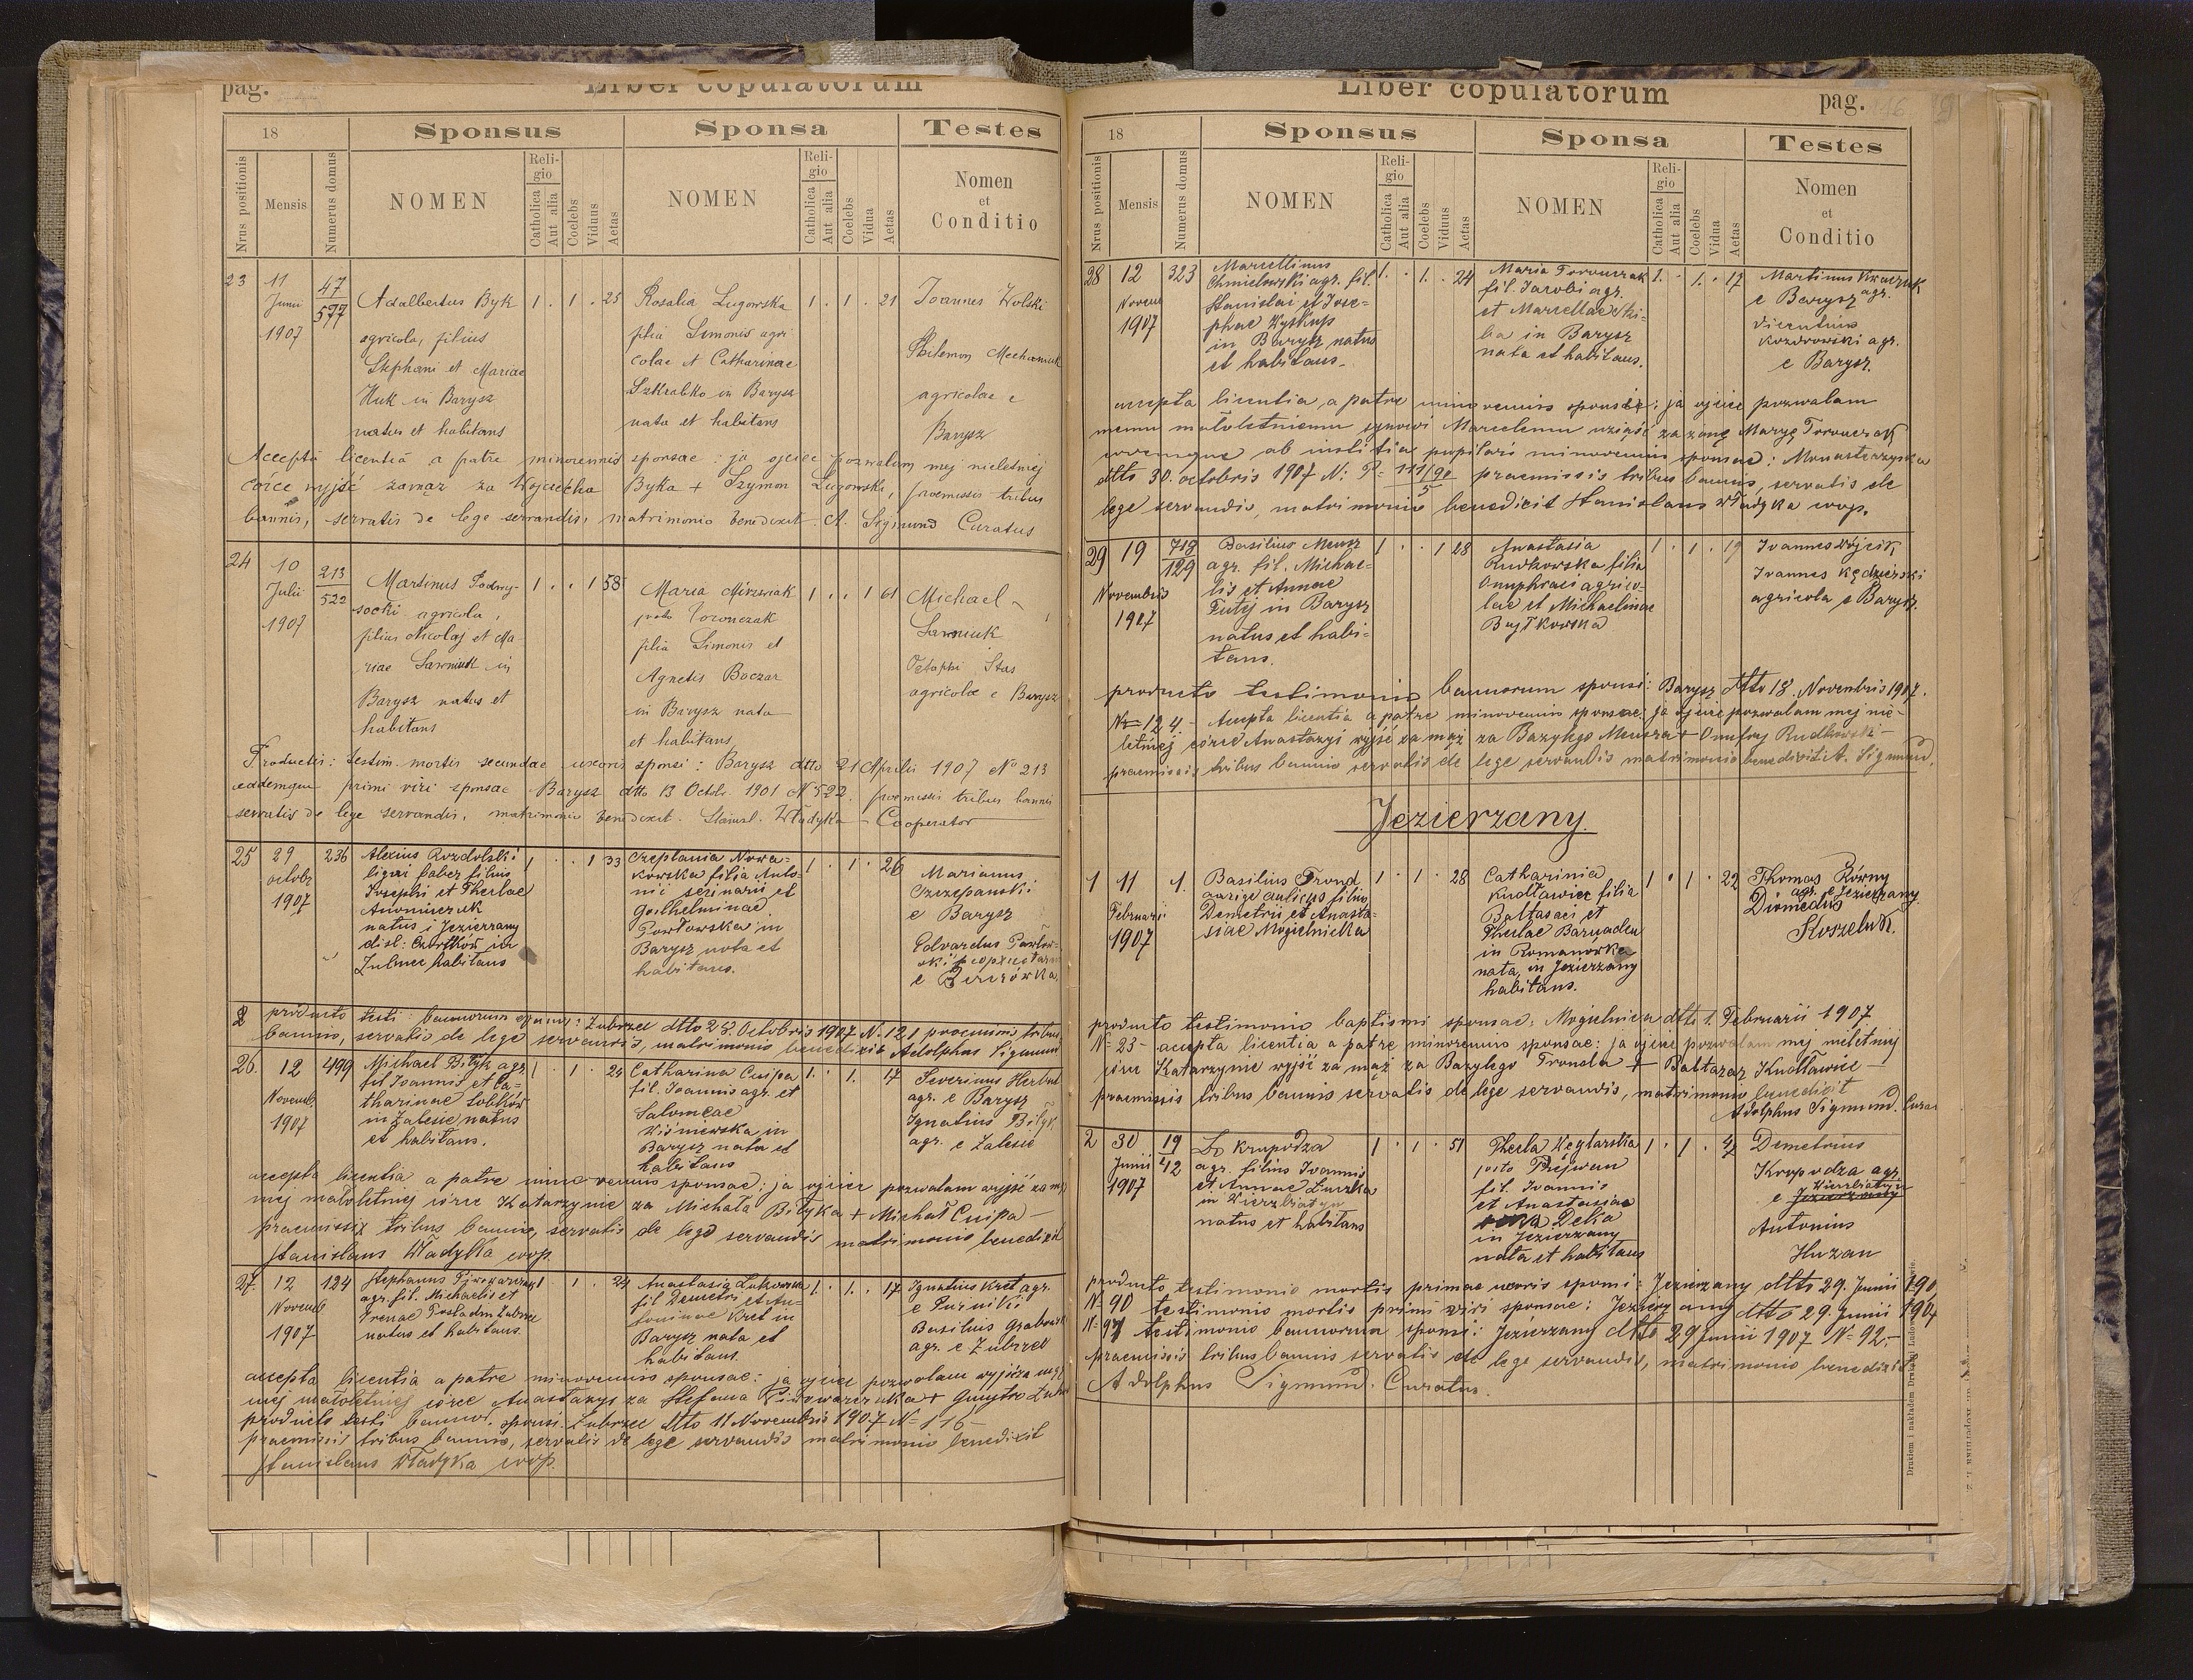 pag.
Liber copulatorum
18
Sponsus
Sponsa
Testes
Nrus positionis
Mensis
Numerus domus
NOMEN
Religio
Catholica
Aut alia
Coelebs
Viduus
Aetas
NOMEN
Religio
Catholica
Aut alia
Coelebs
Vidua
Aetas
Nomen
et
Conditio
23
11
Junii
1907
47
577
Adalbertus Byk
agricola, filius
Stephani et Mariae
Huk in Barysz
natus et habitans
1 . 1 . 25
Rosalia Lugowska
filia Simonis agri-
colae et Catharinae
Szkrabko in Barysz
nata et habitans
1 . 1 . 21
Joannes Wolski
Philemon Mechaniuk
agricolae e
Barysz
Acceptâ licentiâ a patre minorennis sponsae: ja ojciec pozwalam mej nieletniej
córce wyjść zamąż za Wojciecha Byka + Szymon Lugowski, praemissis tribus
bannis, servatis de lege servandis, matrimonio benedixit. A. Sigmund Curatus
24
10
Julii
1907
213
522
Martinus Podwy-
socki agricola,
filius Nicolaj et Ma-
riae Sawniuk in
Barysz natus et
habitans
1 . . 1 58
Maria
filia Simonis et
Agnetis Boczar
in Barysz nata
et habitans
1 . . 1 61
Michael
Sawniuk
Stas
agricolae e Barysz
Productis: testim. mortis secundae uxoris sponsi: Barysz dtto 21 Aprilis 1907 No 213
eademque primi viri sponsae Barysz dtto 13 Octobr. 1901 No 522. praemissis tribus bannis
servatis de lege servandis, matrimonio benedixit. Stanisl. Władyka - Cooperator
25
29
octobr
1907
236
Alexius Rozdolski
ligni faber filius
Josephi et Theclae
natus i Jezierzany
dist: Czortków in
habitans
1 . . 1 33
Nowa-
kowska filia Anto-
nii et
Guilhelminae
Pawłowska in
Barysz nata et
habitans.
1 . 1 . 26
Marianus
Szczepanski
e Barysz
Edvardus Pawłow-
ski
e
producto testi: bannorum sponsi: Zubrzec dtto 28. Octobris 1907 N: 121 praemissis tribus
bannis, servatis de lege servandis, matrimonio benedixit Adolphus Sigmund
26.
12
Novemb.
1907
499
Michael Bityk agr.
fil. Joannis et Ca-
tharinae
in Zalesie natus
et habitans.
1 . 1 . 24
Catharina Cuipa
fil. Joannis agr. et
Salomeae
Wiśniewska in
Barysz nata et
habitans
1. . 1. 17
Severinus Herbut
agr. e Barysz
Ignatius Bityk
agr. e Zalesie
accepta licentia a patre minorennis sponsae: ja ojciec pozwalam wyjść za mąż
mej małoletniej córce Katarzynie za Michała Bityka + Michał Cuipa -
praemissis tribus bannis, servatis de lege servandis matrimonio benedixit
Stanislaus Władyka coop.
27.
12
Novemb
1907
124
Stephanus
agr. fil. Michaelis et
Irenae
natus et habitans.
1 . 1 . 24
Anastasia
fil Demetri et An-
toninae Kret in
Barysz nata et
habitans.
1. . 1. 17
Ignatius Kret agr.
e
Basilius
agr. e Zubrzec
accepta licentiâ a patre minorennis sponsae: ja ojciec pozwalam wyjść za mąż
mej małoletniej córce Anastazyi za Stefana
producto testi bannor. sponsi. Zubrzec dtto 11 Novembris 1907 N= 116 -
praemissis tribus bannis, servatis de lege servandis matrimonio benedixit
Stanislaus Władyka coop.
Liber copulatorum
pag.
18
Sponsus
Sponsa
Testes
Nrus positionis
Mensis
Numerus domus
NOMEN
Religio
Catholica
Aut alia
Coelebs
Viduus
Aetas
NOMEN
Religio
Catholica
Aut alia
Coelebs
Vidua
Aetas
Nomen
et
Conditio
28
12
Novem
1907
323
Marcellinus
Chmielowski agr. fil.
Stanislai et Jose-
phae Wyskup
in Barysz natus
et habitans.
1. . 1. 24
Maria Toronczak
fil. Jacobi agr.
et Marcellae Ski-
ba in Barysz
nata et habitans.
1. . 1. 17
Martinus
e Barysz agr.
Vicentius
Kozdrowski agr.
e Barysz.
accepta licentia a patre minorennis sponsi: ja ojciec pozwalam
memu małoletniemu synowi Marcelemu wziąść za żonę Maryę Toronczak
ab institia pupilari minorennis sponsae: Monasterzyska
dtto 30. octobris 1907 N: P. 111/90 5 praemissis tribus bannis, servatis de
lege servandis, matrimonio benedixit Stanislaus Władyka coop.
29
19
Novembris
1907
718
129
Basilius Mensz
agr. fil. Michae-
lis et Annae
Futyj in Barysz
natus et habi-
tans.
1 . . 1 28
Anastasia
Rudkowska filia
Onuphraei agrico-
lae et Michaelinae
1 . 1 . 19
Joannes Wójcik
Joannes Kędzierski
agricola e Barysz.
producto testimonio bannorum sponsi: Barysz dtto 18. Novembris 1907.
N= 124 - Accepta licentia a patre minorennis sponsae: ja ojciec pozwalam mej nie-
letniej córce Anastazyi wyjść za mąż za Bazylego Mensza + Onufry Rudkowski -
praemissis tribus bannis servatis de lege servandis matrimonio benedixit A. Sigmund.
Jezierzany.
1
11
Februarii
1907
1.
Basilius Trond
auriga aulicus filius
Demetrii et Anasta-
siae Mogielnicka
1 . 1 . 28
Catharina
Knotławiec filia
Baltasaei et
Theclae
in Romanówka
nata, in Jezierzany
habitans.
1 . 1 . 22
Thomas Równy
agr. e Jezierzany
Diomedius
Koszeluk.
producto testimonio baptismi sponsae: Mogielnica dtto 1. Februarii 1907
N= 23 - accepta licentia a patre minorennis sponsae: ja ojciec pozwalam mej nieletniej
córce Katarzynie wyjść za mąż za Bazylego Tronda + Baltazar Knotławiec -
praemissis tribus bannis servatis de lege servandis, matrimonio benedixit
Adolphus Sigmund. Curat
2
30
Junii
1907
19
42
Krupodza
agr. filius Joannis
et Annae
in Wierzbiatyn
natus et habitans
1 . 1 . 51
Thecla Węglarska
fil. Joannis
et Anastasiae
Deka
in Jezierzany
nata et habitans
1 . 1 .
Demetrius
Krupodza agr.
e Wierzbiatyn
Antonius
Huzan
producto testimonio mortis primae uxoris sponsi: Jezierzany dtto 29. Junii 190
N= 90 testimonio mortis primi viri sponsae: Jezierzany dtto 29. Junii 1907
N= 91 testimonio bannorum sponsi: Jezierzany dtto 29 Junii 1907 N= 92.-
praemissis tribus bannis servatis de lege servandis, matrimonio benedixit
Adolphus Sigmund. Curatus.